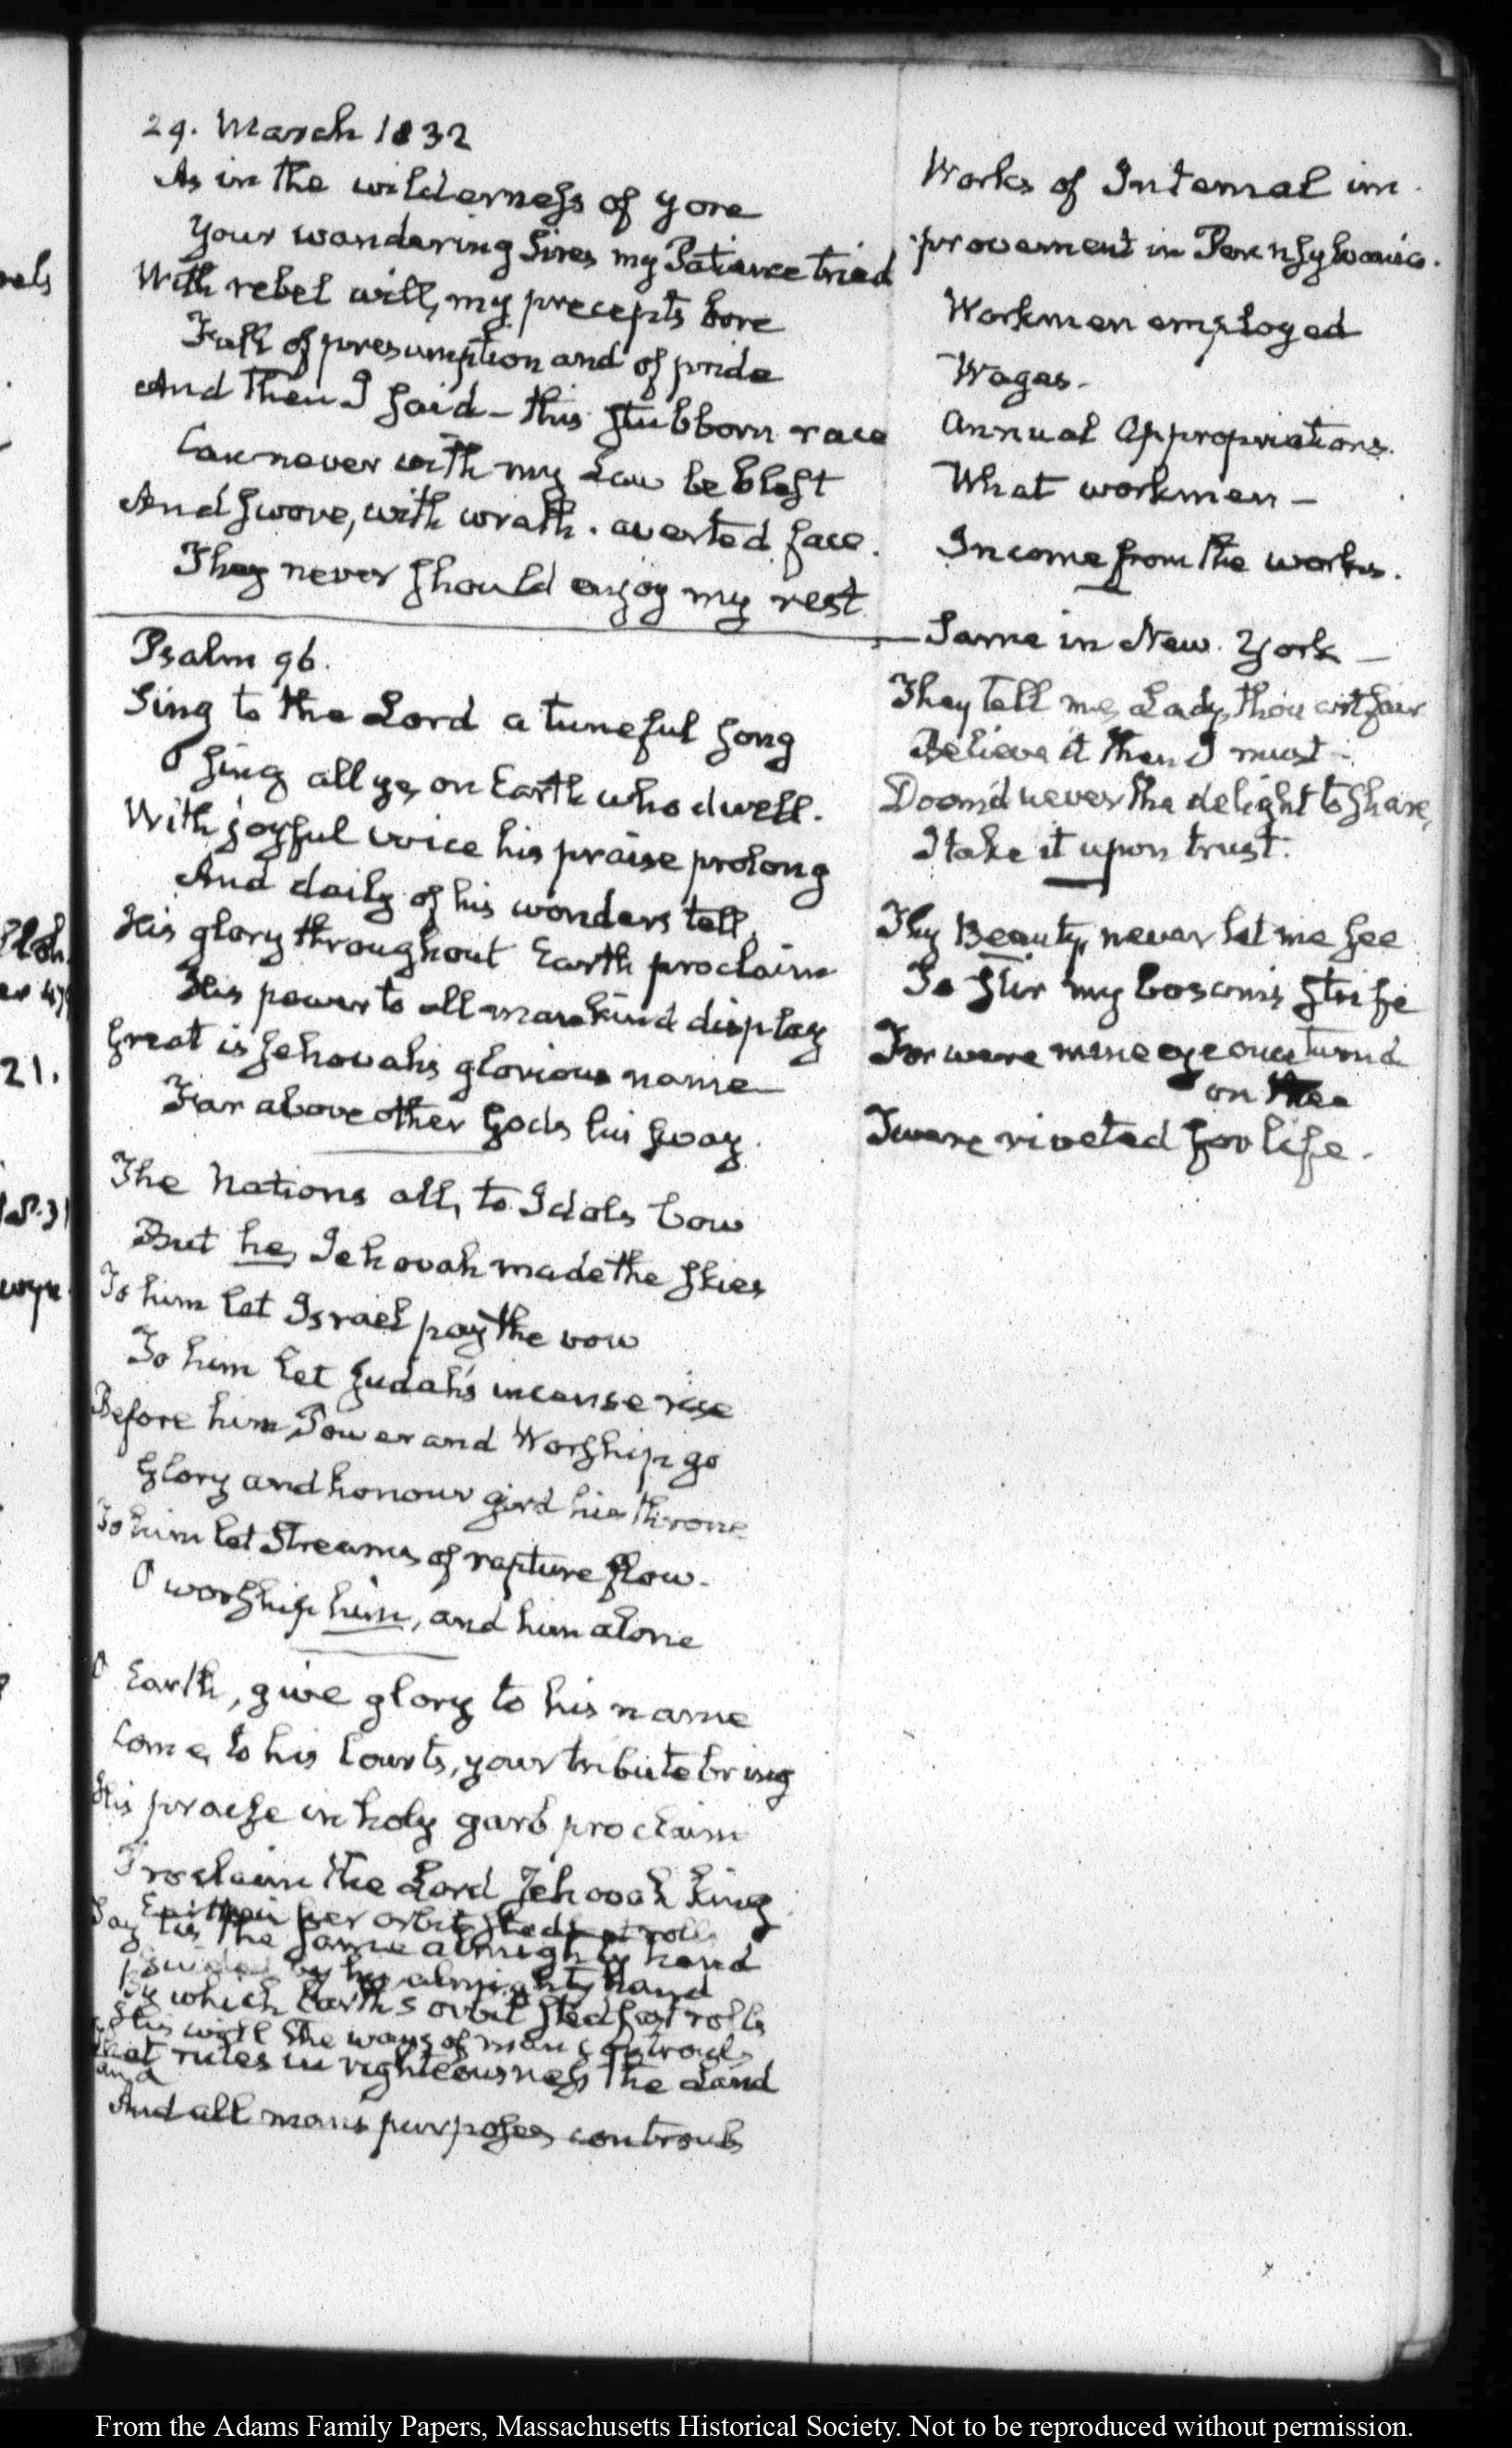 29. March 1832
As in the wilderness of yore
Your wandering Sires my Patience tried
With rebel will, my precepts bore
Full of presumption and of pride
And then I said - this stubborn race
Can never with my Law be blest
And swore, with wrath. averted face.
They never should enjoy my rest
Psalm 96.
Sing to the Lord a tuneful song
O sing all ye, on Earth who dwell.
With joyful voice his praise prolong
And daily of his wonders tell.
His glory throughout Earth proclaim
His power to all mankind display
Great is Jehovah's glorious name
Far above other Gods his sway.
The Nations all, to Idols bow
But he, Jehovah made the skies
To him let Israel pay the vow
To him let Judah's incense rise
Before him, Power and Worship go
Glory and honour gird his throne
To him let Streams of rapture flow.
O worship him, and him alone
O Earth, give glory to his name
Come, to his Courts, your tribute bring
His praise in holy garb proclaim
Proclaim the Lord Jehovah King
her orbit stedfast rolls
Say tis the same almighty hand
by his almighty hand
By which Earth's orbit stedfast rolls
His will the ways of man controuls
that rules in righteousness the Land
and
And all mans purposes controuls
Works of Internal im
provement in Pennsylvania.
Workmen employed
Wages-
Annual Appropriations.
What workmen -
Income from the works.
Same in New York -
They tell me, Lady, thou art fair
Believe it then I must -
Doom'd never the delight to share,
I take it upon trust.
Thy Beauty, never let me see
To stir my bosom's strife
For were mine eye once turn'd
on thee
Twere riveted for life.
21.
From the Adams Family Papers, Massachusetts Historical Society. Not to be reproduced without permission.